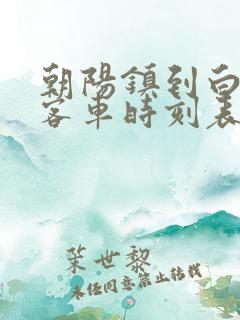 朝陽鎮到白
客車時刻表
茉世黎
未經同意禁止轉載